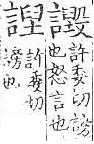 譭
許委切謗
也怒言也
許委切
謗也